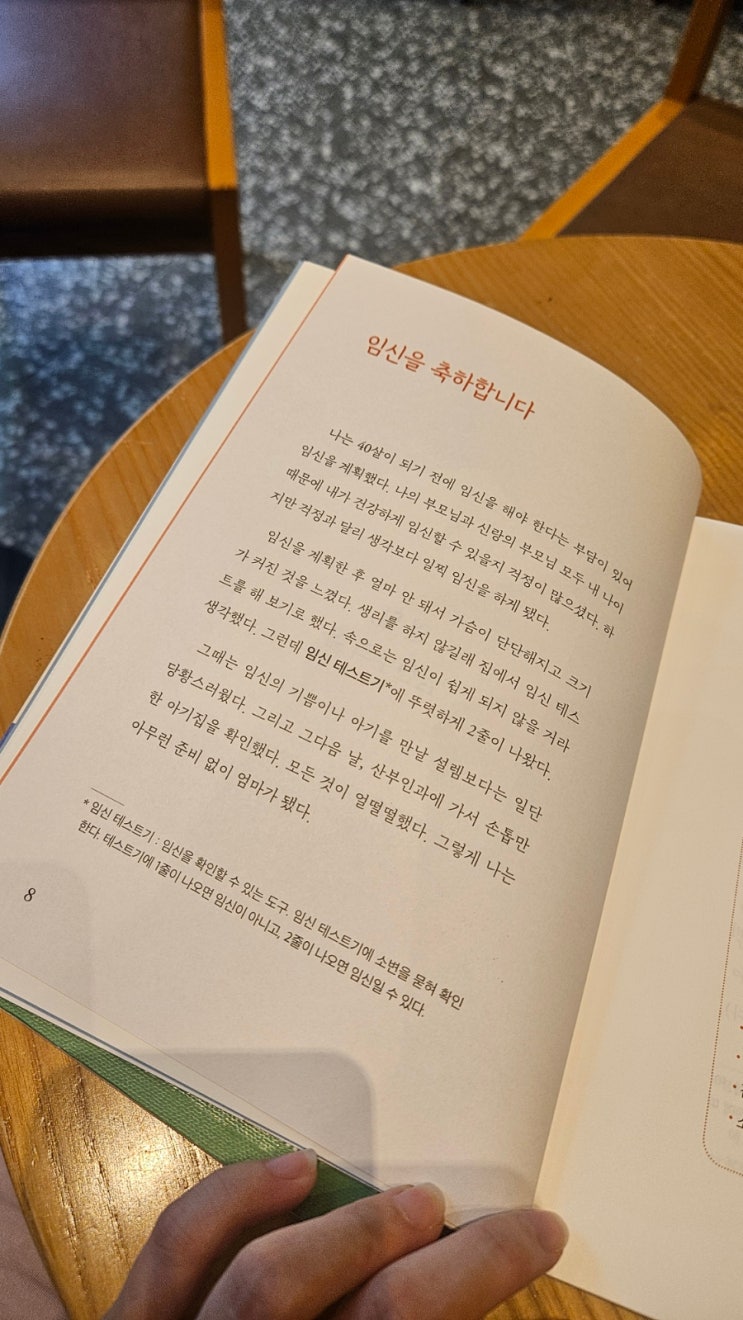 임신을 축하합니다
나는 40살이 되기 전에 임신을 해야 한다는 부담이 있어
임신을 계획했다. 나의 부모님과 신랑의 부모님 모두 내 나이
때문에 내가 건강하게 임신할 수 있을지 걱정이 많으셨다. 하
지만 걱정과 달리 생각보다 일찍 임신을 하게 됐다.
임신을 계획한 후 얼마 안 돼서 가슴이 단단해지고 크기
가 커진 것을 느꼈다. 생리를 하지 않길래 집에서 임신 테스
트를 해 보기로 했다. 속으로는 임신이 쉽게 되지 않을 거라
생각했다. 그런데 임신 테스트기*에 뚜렷하게 2줄이 나왔다.
그때는 임신의 기쁨이나 아기를 만날 설렘보다는 일단
당황스러웠다. 그리고 그다음 날, 산부인과에 가서 손톱만
한 아기집을 확인했다. 모든 것이 얼떨떨했다. 그렇게 나는
아무런 준비 없이 엄마가 됐다.
* 임신 테스트기 : 임신을 확인할 수 있는 도구. 임신 테스트기에 소변을 묻혀 확인
한다. 테스트기에 1줄이 나오면 임신이 아니고, 2줄이 나오면 임신일 수 있다.
8